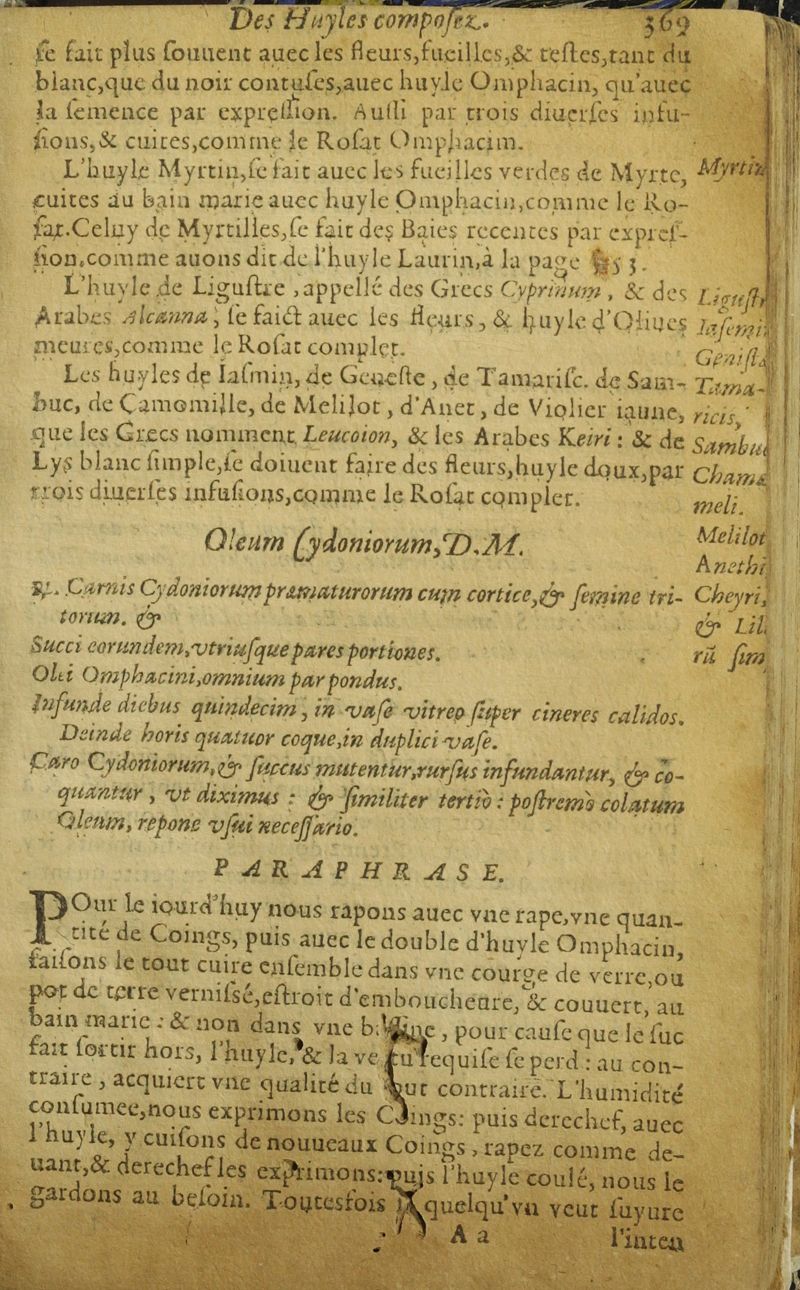 Des Huyles composez. 369
se fait plus souuent auec les fleurs, fueilles, & testes, tant du
blanc, que du noir contuses, auec huyle Omphacin, qu'auec
la semence par expression. Aussi par trois diuerses infu-
sions, & cuites, comme le Rosat Omphacim.
L'huyle Myrtin, se fait auec les fueilles verdes de Myrte,
Myrtin
cuites au bain marie auec huyle Omphacin, comme le Ro-
sat. Celuy de Myrtilles, se fait des Baies recentes par expres-
sion, comme auons dit de l'huyle Laurin, à la page 3.
L'huyle de Ligustre, appellé des Grecs Cyprinum, & des
Ligustri
Arabes Alcanna, se faict auec les fleurs, & huyle d'Oliues
Iasemi
meures, comme le Rosat complet.
Genista
Les huyles de Iasmin, de Geneste, de Tamarisc. de Sam-
Tama-
buc, de Camomille, de Melilot, d'Anet, de Violier iaune,
ricis,
que les Grecs nomment Leucoion, & les Arabes Keiri : & de
Sambu
Lys blanc simple, se doiuent faire des fleurs, huyle doux, par
Chamæ
trois diuerses infusions, comme le Rosat complet.
meli.
Melilot
Anethi
Cheyri,
& Lil.
rū sim
Oleum Cydoniorum, D. M.
℞. Carnis Cydoniorum præmaturorum cum cortice, & semine tri-
torum. &
Succi eorundem, vtriusque pares portiones.
Olei Omphacini, omnium par pondus.
Infunde diebus quindecim, in vase vitreo super cineres calidos.
Deinde horis quatuor coque, in duplici vase.
Caro Cydoniorum, & succus mutentur, rursus infundantur, & co-
quantur, vt diximus : & similiter tertiò : postremò colatum
Oleum, repone vsui necessario.
PARAPHRASE.
POur le iourd'huy nous rapons auec vne rape, vne quan-
tité de Coings, puis auec le double d'huyle Omphacin,
faisons le tout cuire ensemble dans vne courge de verre, ou
pot de terre vernissé, estroit d'emboucheure, & couuert, au
bain marie : & non dans vne, pour cause que le suc
fait sortir hors, l'huyle, & la requise se perd : au con-
traire, acquiert vne qualité du contraire. L'humidité
consumee, nous exprimons les Coings: puis derechef, auec
l'huyle, y cuisons de nouueaux Coings, rapez comme de-
uant, & derechef les exprimons: puis l'huyle coulé, nous le
gardons au besoin. Toutesfois quelqu'vn veut suyure
A a l'inten